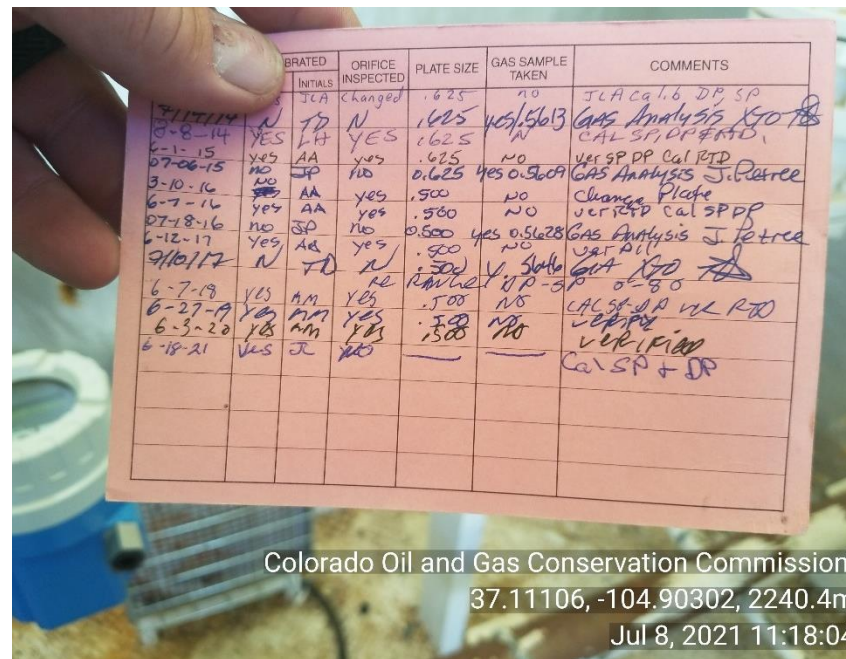 BRATED ORIFICE INSPECTED PLATE SIZE GAS SAMPLE TAKEN COMMENTS
INITIALS
JLA Changed .625 no JLA Calib DP, SP
7/17/14 N TD N .625 yes/.5613 GAS Analysis XTO
8-8-14 YES LH YES .625 N CAL SP, DP & RTD,
6-1-15 yes AA yes .625 NO ver SP DP Cal RTD
07-06-15 no JP no 0.625 yes 0.5609 GAS Analysis J. Petree
3-10-16 NO AA yes .500 NO Change Plate
6-7-16 yes AA yes .500 NO ver RTD Cal SP DP
07-18-16 no JP no 0.500 yes 0.5628 GAS Analysis J. Petree
6-12-17 Yes, AA yes .500 NO ver All
7/10/17 N TD N .500 Y .5646 GA XTO
Re Range DP-SP 0-80
6-7-18 yes AM yes .500 NO CAL SP-DP VER RTD
6-27-19 yes AM yes .500 NO verify
6-3-20 yes AM yes .500 NO verified
6-18-21 Yes JL NO Cal SP + DP
Colorado Oil and Gas Conservation Commission
37.11106, -104.90302, 2240.4m
Jul 8, 2021 11:18:04